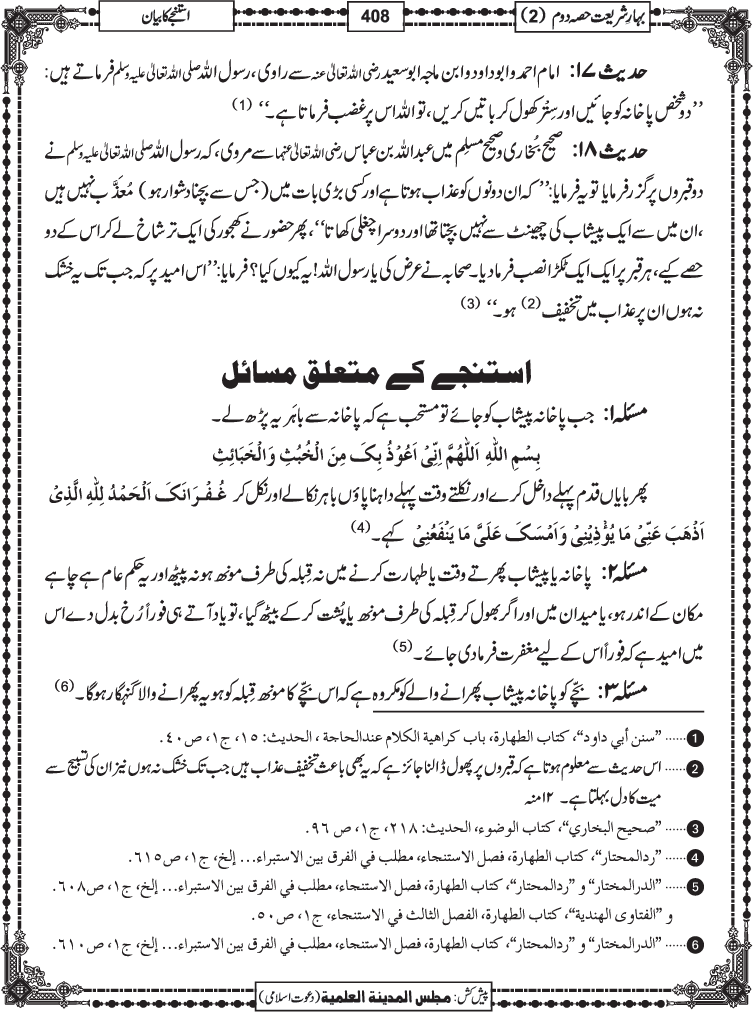 بہارِ شریعت حصہ دوم (2)
408
استنجے کا بیان
حدیث ۱۷: امام احمد وابو داود وابن ماجہ ابو سعید رضی اللہ تعالیٰ عنہ سے راوی، رسول اللہ صلی اللہ تعالیٰ علیہ وسلم فرماتے ہیں:
’’دو شخص پاخانہ کو جائیں اور سِتْر کھول کر باتیں کریں، تو اللہ اس پر غضب فرماتا ہے۔‘‘ (1)
حدیث ۱۸: صحیح بُخاری و صحیح مسلِم میں عبد اللہ بن عباس رضی اللہ تعالیٰ عنہما سے مروی، کہ رسول اللہ صلی اللہ تعالیٰ علیہ وسلم نے
دو قبروں پر گزر فرمایا تو یہ فرمایا: ’’ کہ ان دونوں کو عذاب ہوتا ہے اور کسی بڑی بات میں (جس سے بچنا دشوار ہو ) مُعذَّب نہیں ہیں
، ان میں سے ایک پیشاب کی چھینٹ سے نہیں بچتا تھا اور دوسرا چغلی کھاتا‘‘، پھر حضور نے کھجور کی ایک تر شاخ لے کر اس کے دو
حصے کیے، ہر قبر پر ایک ایک ٹکڑا نصب فرما دیا۔ صحابہ نے عرض کی یا رسول اللہ! یہ کیوں کیا؟ فرمایا: ’’اس امید پر کہ جب تک یہ خشک
نہ ہوں ان پر عذاب میں تخفیف (2) ہو۔‘‘ (3)
استنجے کے متعلق مسائل
مسئلہ ۱: جب پاخانہ پیشاب کو جائے تو مستحب ہے کہ پاخانہ سے باہَر یہ پڑھ لے۔
بِسْمِ اللّٰهِ اَللّٰهُمَّ اِنِّیْ اَعُوْذُ بِکَ مِنَ الْخُبُثِ وَالْخَبَائِثِ
پھر بایاں قدم پہلے داخل کرے اور نکلتے وقت پہلے داہنا پاؤں باہر نکالے اور نکل کر غُفْرَانَکَ اَلْحَمْدُ لِلّٰهِ الَّذِیْ
اَذْهَبَ عَنِّیْ مَا یُؤْذِیْنِیْ وَاَمْسَکَ عَلَیَّ مَا یَنْفَعُنِیْ کہے۔ (4)
مسئلہ ۲: پاخانہ یا پیشاب پھرتے وقت یا طہارت کرنے میں نہ قِبلہ کی طرف مونھ ہو نہ پیٹھ اور یہ حکم عام ہے چاہے
مکان کے اندر ہو، یا میدان میں اور اگر بھول کر قِبلہ کی طرف مونھ یا پُشت کر کے بیٹھ گیا، تو یاد آتے ہی فوراً رُخ بدل دے اس
میں امید ہے کہ فوراً اس کے لیے مغفرت فرما دی جائے۔ (5)
مسئلہ ۳: بچّے کو پاخانہ پیشاب پھرانے والے کو مکروہ ہے کہ اس بچّے کا مونھ قِبلہ کو ہو یہ پھرانے والا گنہگار ہوگا۔ (6)
1 ...... ’’سنن أبي داود‘‘، كتاب الطهارة، باب كراهية الكلام عندالحاجة ، الحديث: ١٥، ج١، ص٤٠.
2 ...... اس حدیث سے معلوم ہوتا ہے کہ قبروں پر پھول ڈالنا جائز ہے کہ یہ بھی باعث تخفیف عذاب ہیں جب تک خشک نہ ہوں نیز ان کی تسبیح سے
میت کا دل بہلتا ہے۔ ۱۲منہ
3 ...... ’’صحيح البخاري‘‘، كتاب الوضوء، الحديث: ٢١٨، ج١، ص ٩٦.
4 ...... ’’ردالمحتار‘‘، كتاب الطهارة، فصل الاستنجاء، مطلب في الفرق بين الاستبراء... إلخ، ج١، ص٦١٥.
5 ...... ’’الدرالمختار‘‘ و ’’ردالمحتار‘‘، كتاب الطهارة، فصل الاستنجاء، مطلب في الفرق بين الاستبراء... إلخ، ج١، ص٦٠٨.
و ’’الفتاوى الهندية‘‘، كتاب الطهارة، الفصل الثالث في الاستنجاء، ج١، ص٥٠.
6 ...... ’’الدرالمختار‘‘ و ’’ردالمحتار‘‘، كتاب الطهارة، فصل الاستنجاء، مطلب في الفرق بين الاستبراء... إلخ، ج١، ص٦١٠.
پیش کش: مجلس المدینة العلمیة (دعوت اسلامی)